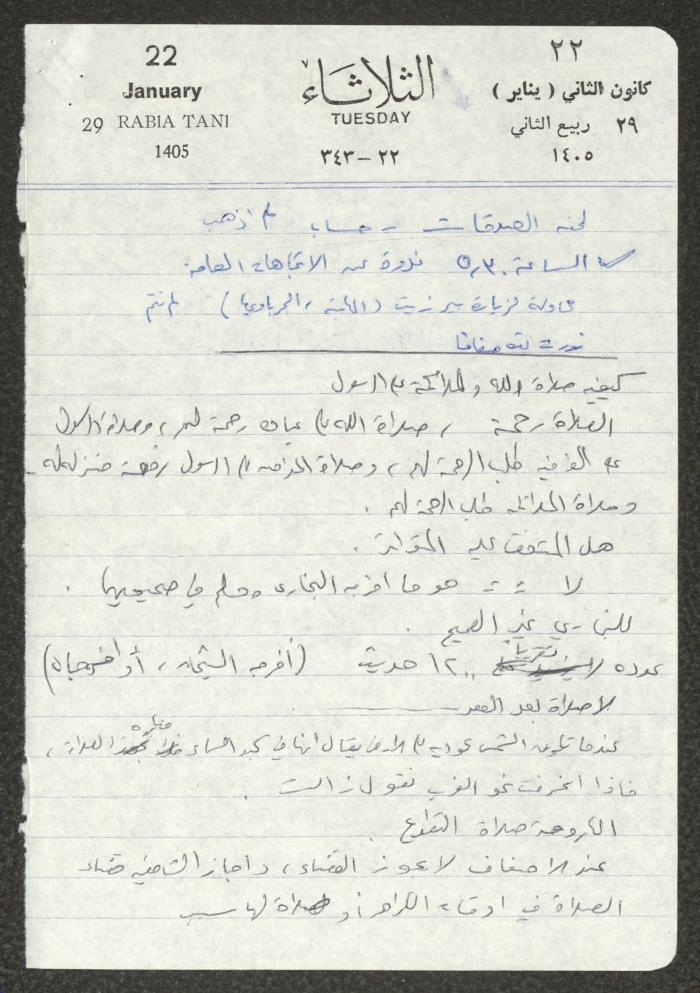 22
January
29 RABIA TANI
1405
الثلاثاء
TUESDAY
٢٢ – ٣٤٣
٢٢
كانون الثاني ( يناير )
٢٩ ربيع الثاني
١٤٠٥
لجنه الصدقات - حساب لم اذهب
الساعة ٥,٣٠ ندوة عن الاتجاهات العامه
محاولة لزيارة بير زيت ( ) لم تتم
كيفيه صلاة الله والملائكة على الرسول
الصلاة رحمة ، صلاة الله على عباده رحمة لهم ، وصلاة الرسول
على طلب الرحمة لهم ، وصلاة على الرسول رفعة منزلته
وصلاة الملائكه طلب الرحمة لهم .
هل المتفق عليه المتواتر .
لا = = هو ما اخرجه البخاري ومسلم في صحيحيهما .
للبخاري غير الصحيح .
عدده تقريباً ١٢٠٠ حديث (أخرجه الشيخان ، أو اخرجاه)
لا صلاة بعد العصر
عندما تكون الشمس عموديه على الارض يقال انها في كبد السماء الصلاة ،
فاذا انحرفت نحو الغرب نقول زالت .
صلاة التطوع .
عند الاحناف لا يجوز القضاء ، واجاز الشافعيه قضاء
الصلاة في اوقات الكراهه أو صلاة لها سبب